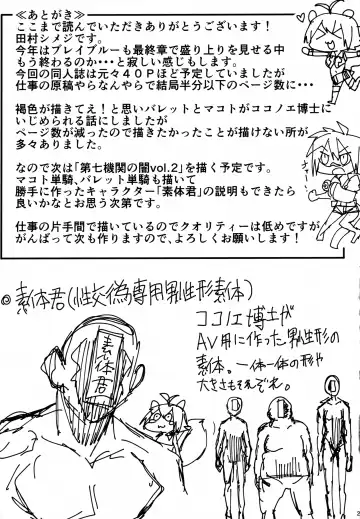 ≪あとがき≫
ここまで読んでいただきありがとうございます！
田村シメジです。
今年はブレイブルーも最終章で盛り上りを見せる中
もう終わるのか･･･と寂しい感じもします。
今回の同人誌は元々４０Ｐほど予定していましたが
仕事の原稿やらなんやらで結局半分以下のページ数に･･･
褐色が描きてえ！と思いバレットとマコトがココノエ博士に
いじめられる話にしましたが
ページ数が減ったので描きたかったことが描けない所が
多々ありました。
なので次は「第七機関の闇vol.2」を描く予定です。
マコト単騎、バレット単騎も描いて
勝手に作ったキャラクター「素体君」の説明もできたら
良いかなとお思う次第です。
仕事の片手間で描いているのでクオリティーは低めですが
がんばって次も作りますので、よろしくお願いします！
◎素体君(性交偽専用男性形素体)
素体君
ココノエ博士が
AV用に作った男性形の
素体。一体一体の形や
大きさもそれぞれ。
2